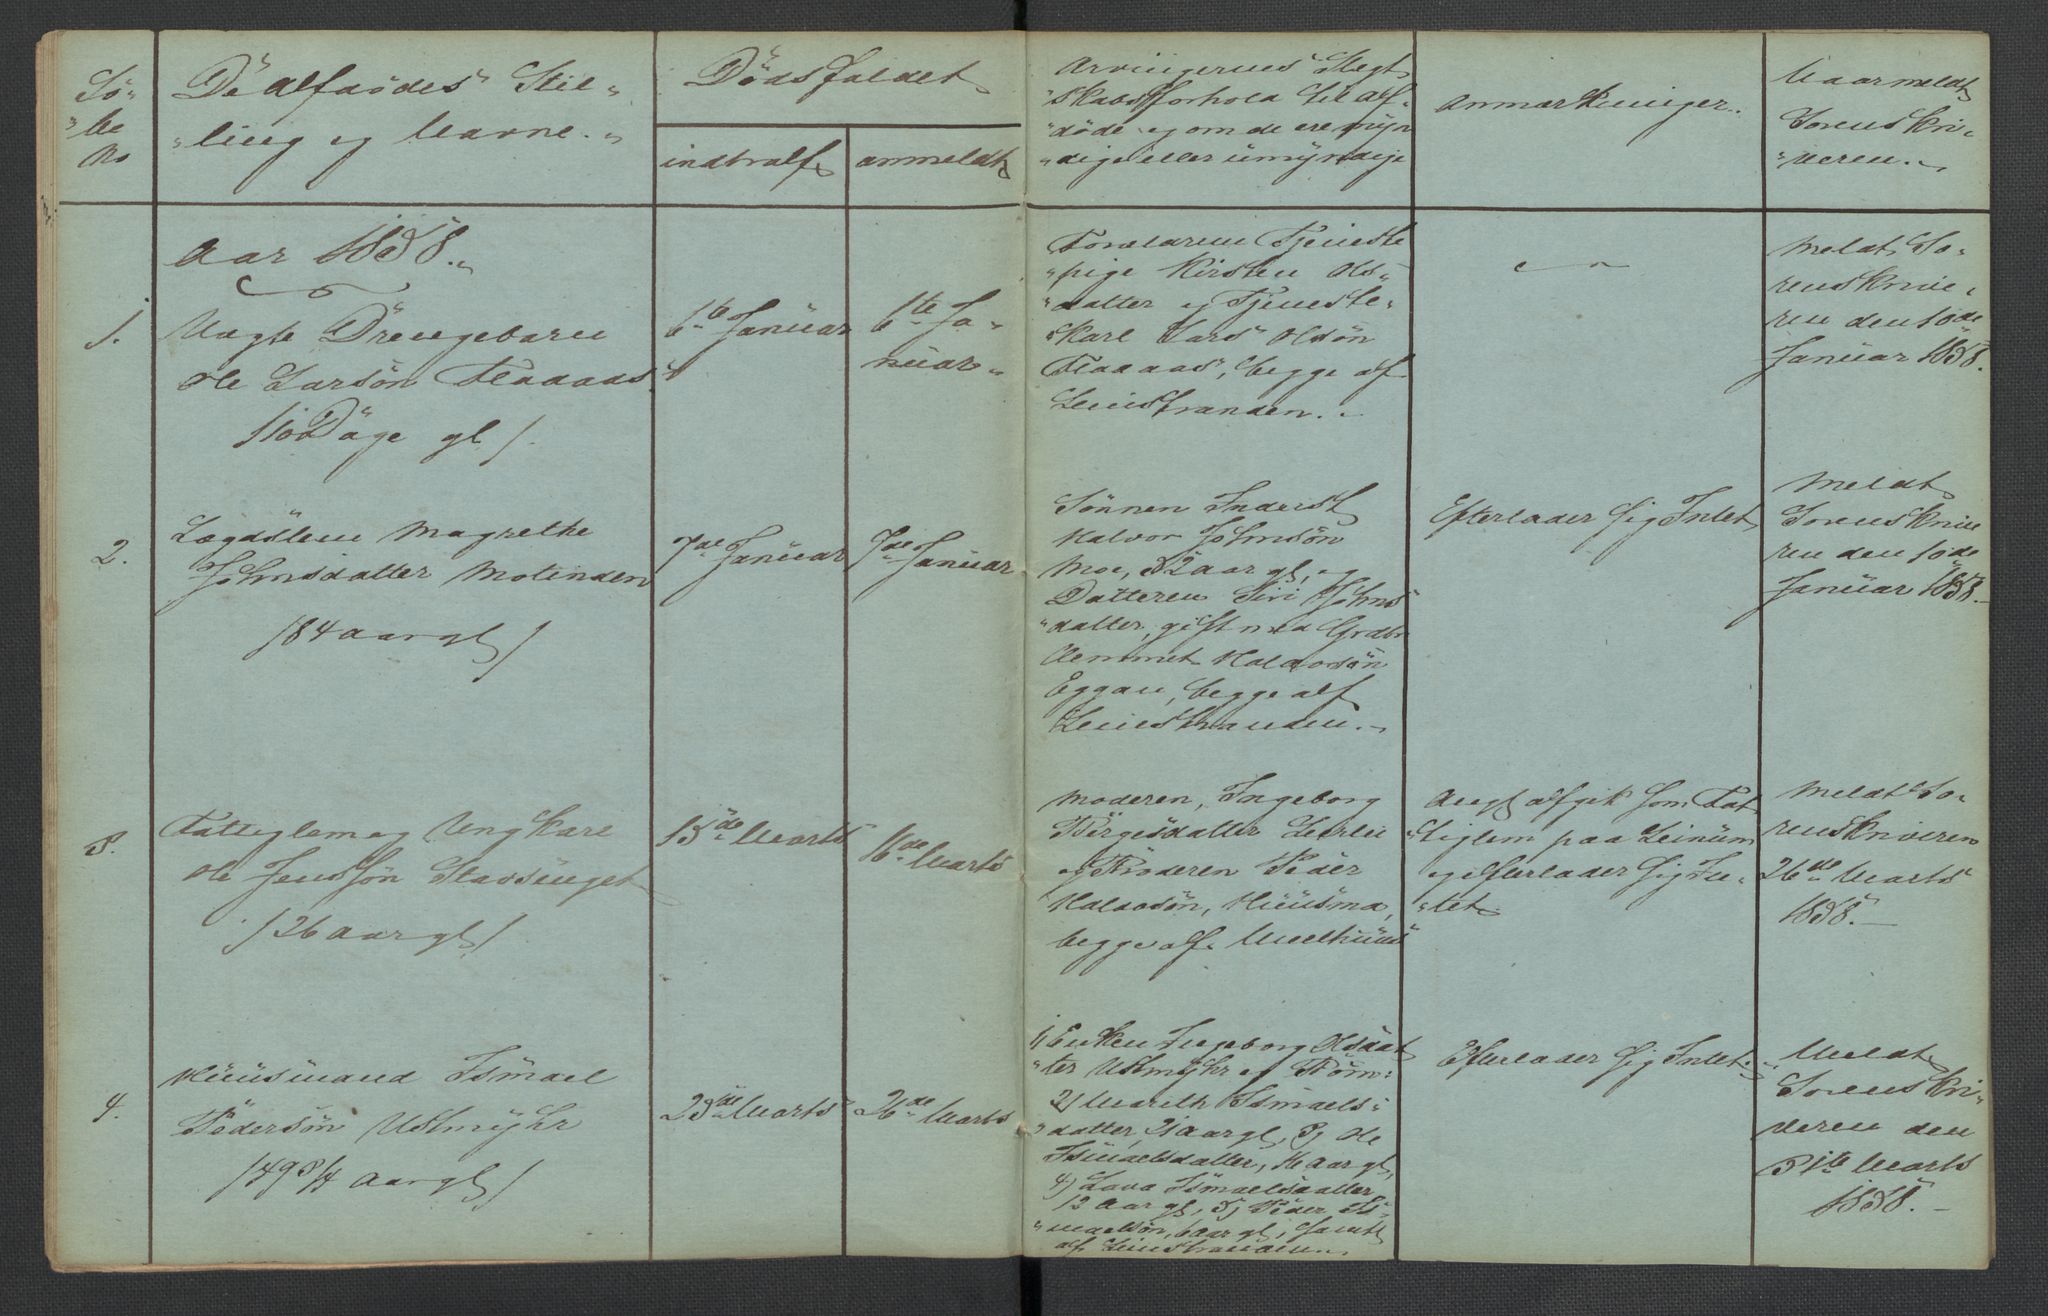 Lö-
"be
No
De afdödes Stil-
"ling og Navne.
Dödsfaldet
indtraf
anmeldt
Arvingernes Slegt-
"skabsforhold til Af-
"döde og om de ere myn
"dige eller umyndige
Anmærkninger.
Naar meldt
Sorenskri-
"veren.
Aar 1858.
1.
Uægte Drengebarn
Ole Larsön
/10 Dage gl/.
6te Januar
6te Ja-
nuar
Forældrene Tjeneste
"pige Kirsten Ols-
"datter og Tjeneste-
"karl Lars Olsön
begge af
Leinstranden.
Meldt So-
renskrive-
ren den 10de
Januar 1858.
2.
Lægdslem Magrethe
Johnsdatter Motinden
/84 Aar gl/
7de Januar
7de Januar
Sönnen Inderst
Halvor Johnsön
Moe, 52 Aar gl, og
Datteren Siri Johns
"datter, gift med Grdbr
Halvorsön
Eggan, begge af
Leinstranden.
Efterlader sig Intet
Meldt
Sorenskrive
ren den 10de
Januar 1858.
3.
Fattiglem og Ungkarl
Ole Jenssön Stavsinget
/26 Aar gl/
15de Marts
16de Marts
Moderen, Ingeborg
Börgesdatter
og Broderen Peder
Halvorsön, Huusmd,
begge af Meelhuus
Angt afgik som Fat
"tiglem paa Leinum
og efterlader sig In-
"tet
Meldt So-
renskriveren
26de Marts
1858.
4.
Huusmand Ismael
Pedersön Ustmyhr
/49 3/4 Aar gl/
25de Marts
26de Marts
1/ Enken Ingeborg Olsdat
"ter Ustmyhr og Börn
2/ Marith Ismaels-
"datter, 21 Aar gl, 3/ Ole
Ismaelsdatter, 16 Aar gl,
4/ Lava Ismaelsdatter
12 Aar gl, 5/ Peder Is-
"maelsön, 6 Aar gl, samtl
af Leinstranden.
Efterlader sig Intet.
Meldt
Sorenskri-
veren den
31te Marts
1858.